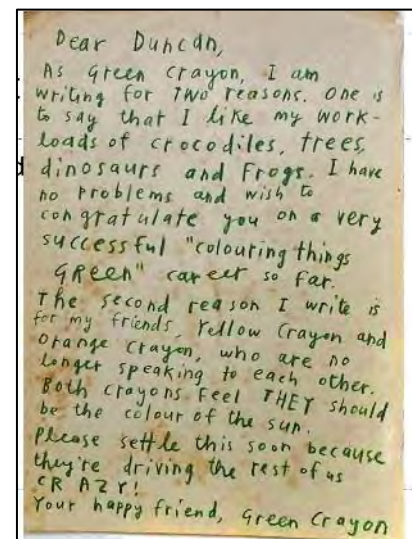 Dear Duncan,
As Green Crayon, I am
writing for TWO reasons. One is
to say that I like my work-
loads of crocodiles, trees,
dinosaurs and Frogs. I have
no problems and wish to
congratulate you on a very
successful "colouring things
GReeN" career so far.
The second reason I write is
for my friends, Yellow Crayon and
Orange Crayon, who are no
longer speaking to each other.
Both crayons Feel THEY should
be the colour of the sun.
Please settle this soon because
they're driving the rest of us
CRAZY!
Your happy friend, Green Crayon